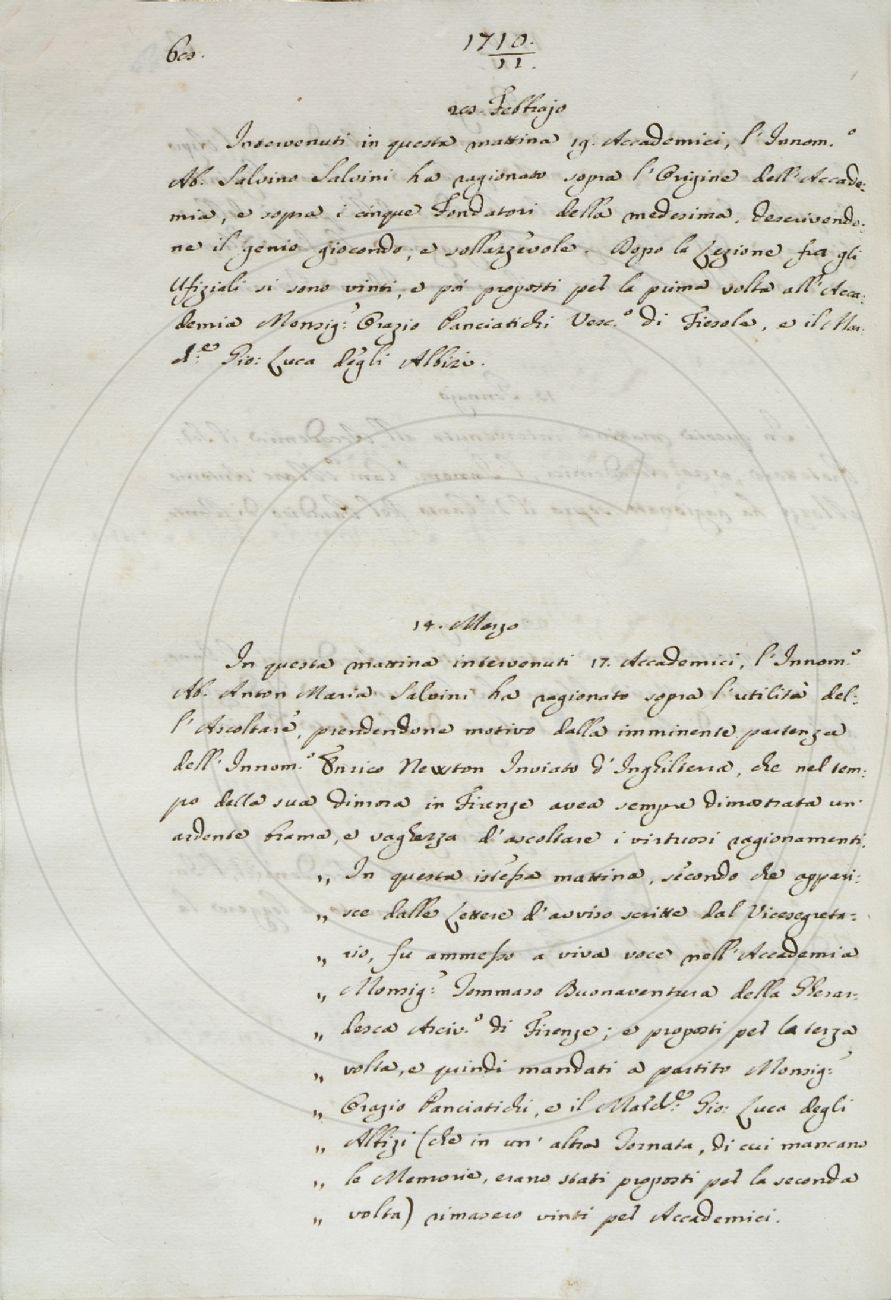 60.
1710.
11.
20. Febbrajo
Intervenuti in questa mattina 19. Accademici, l'Innom.º
Ab. Salvino Salvini ha ragionato sopra l'Origine dell'Accade:
mia, e sopra i cinque Fondatori della medesima, descrivendo:
ne il genio giocondo, e sollazzevole. Dopo la Lezione fra gli
Ufiziali si sono vinti, e poi proposti per la prima volta all'Acca:
demia Monsig.r Orazio Panciatichi Vesc.º di Fiesole, e il Mar:
ch.e Gio: Luca degli Albizi.
14. Marzo
In questa mattina intervenuti 17. Accademici, l'Innom.º
Ab. Anton Maria Salvini ha ragionato sopra l'utilità del:
l'Ascoltare, prendendone motivo dalla imminente partenza
dell'Innom.º Enrico Newton Inviato d'Inghilterra, che nel tem:
po della sua dimora in Firenze avea sempre dimostrata un'
ardente brama, e vaghezza d'ascoltare i virtuosi ragionamenti.
„ In questa istessa mattina, secondo che appari:
„ sce dalle Lettere d'avviso scritte dal Vicesegreta:
„ rio, fu ammesso a viva voce nell'Accademia
„ Monsig.r Tommaso Buonaventura della Gherar:
„ desca Arciv.º di Firenze; e proposti per la terza
„ volta, e quindi mandati a partito Monsig.r
„ Orazio Panciatichi, e il March.e Gio: Luca degli
„ Albizi (che in un'altra Tornata, di cui mancano
„ le Memorie, erano stati proposti per la seconda
„ volta) rimasero vinti per Accademici.